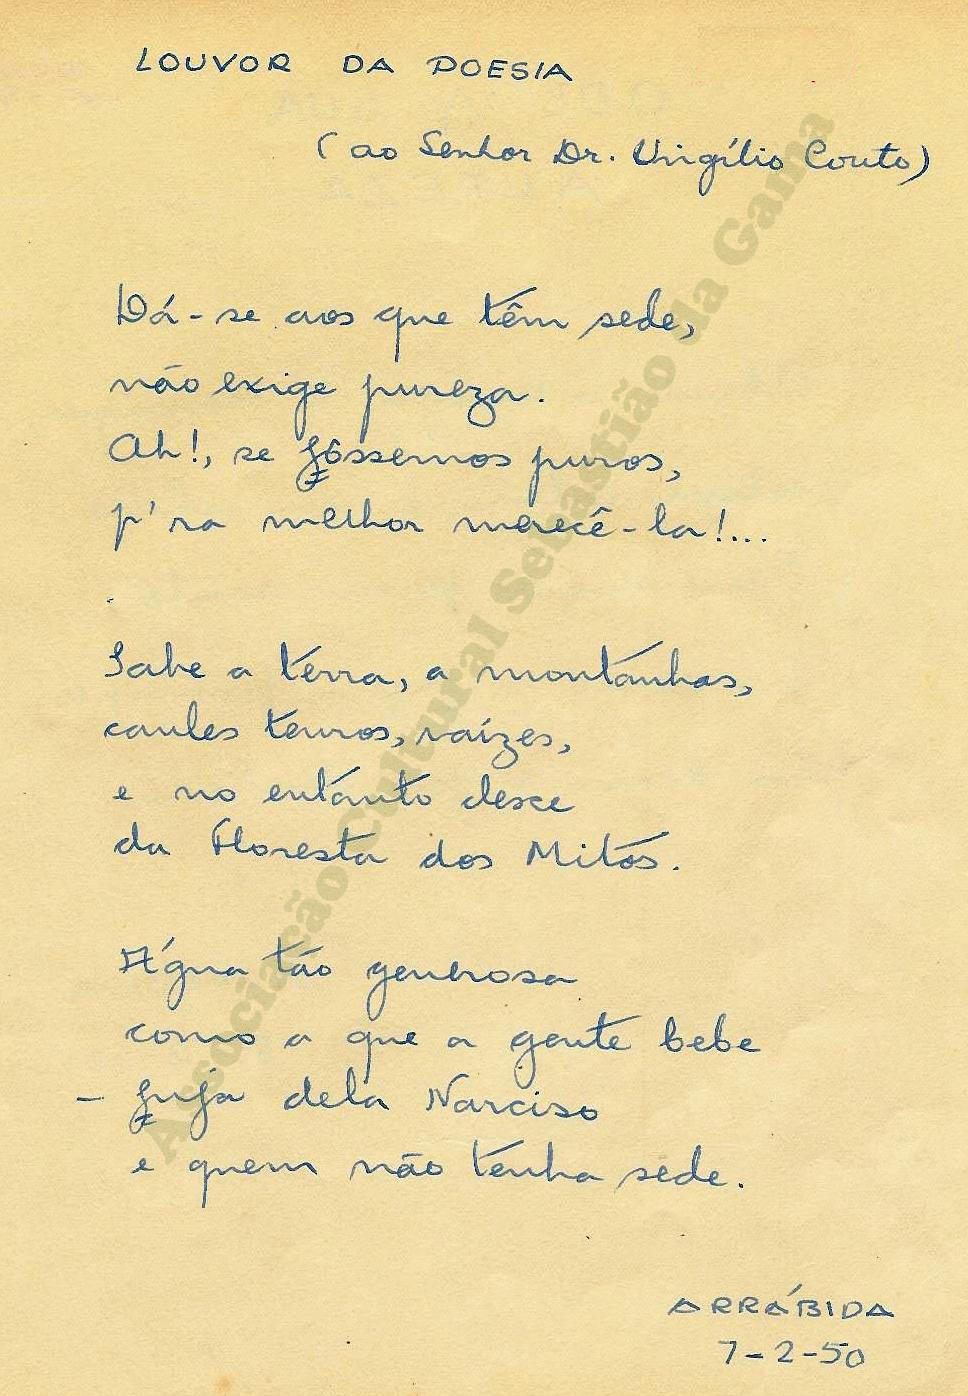 LOUVOR DA POESIA
(ao Senhor Dr. Virgílio Couto)
Dá-se aos que têm sede,
não exige pureza.
Ah!, se fôssemos puros,
p'ra melhor merecê-la!...
Sabe a terra, a montanhas,
caules tenros, raízes,
e no entanto desce
da Floresta dos Mitos.
Água tão generosa
como a que a gente bebe
– fuja dela Narciso
e quem não tenha sede.
ARRÁBIDA
7-2-50
Associação Cultural Sebastião da Gama